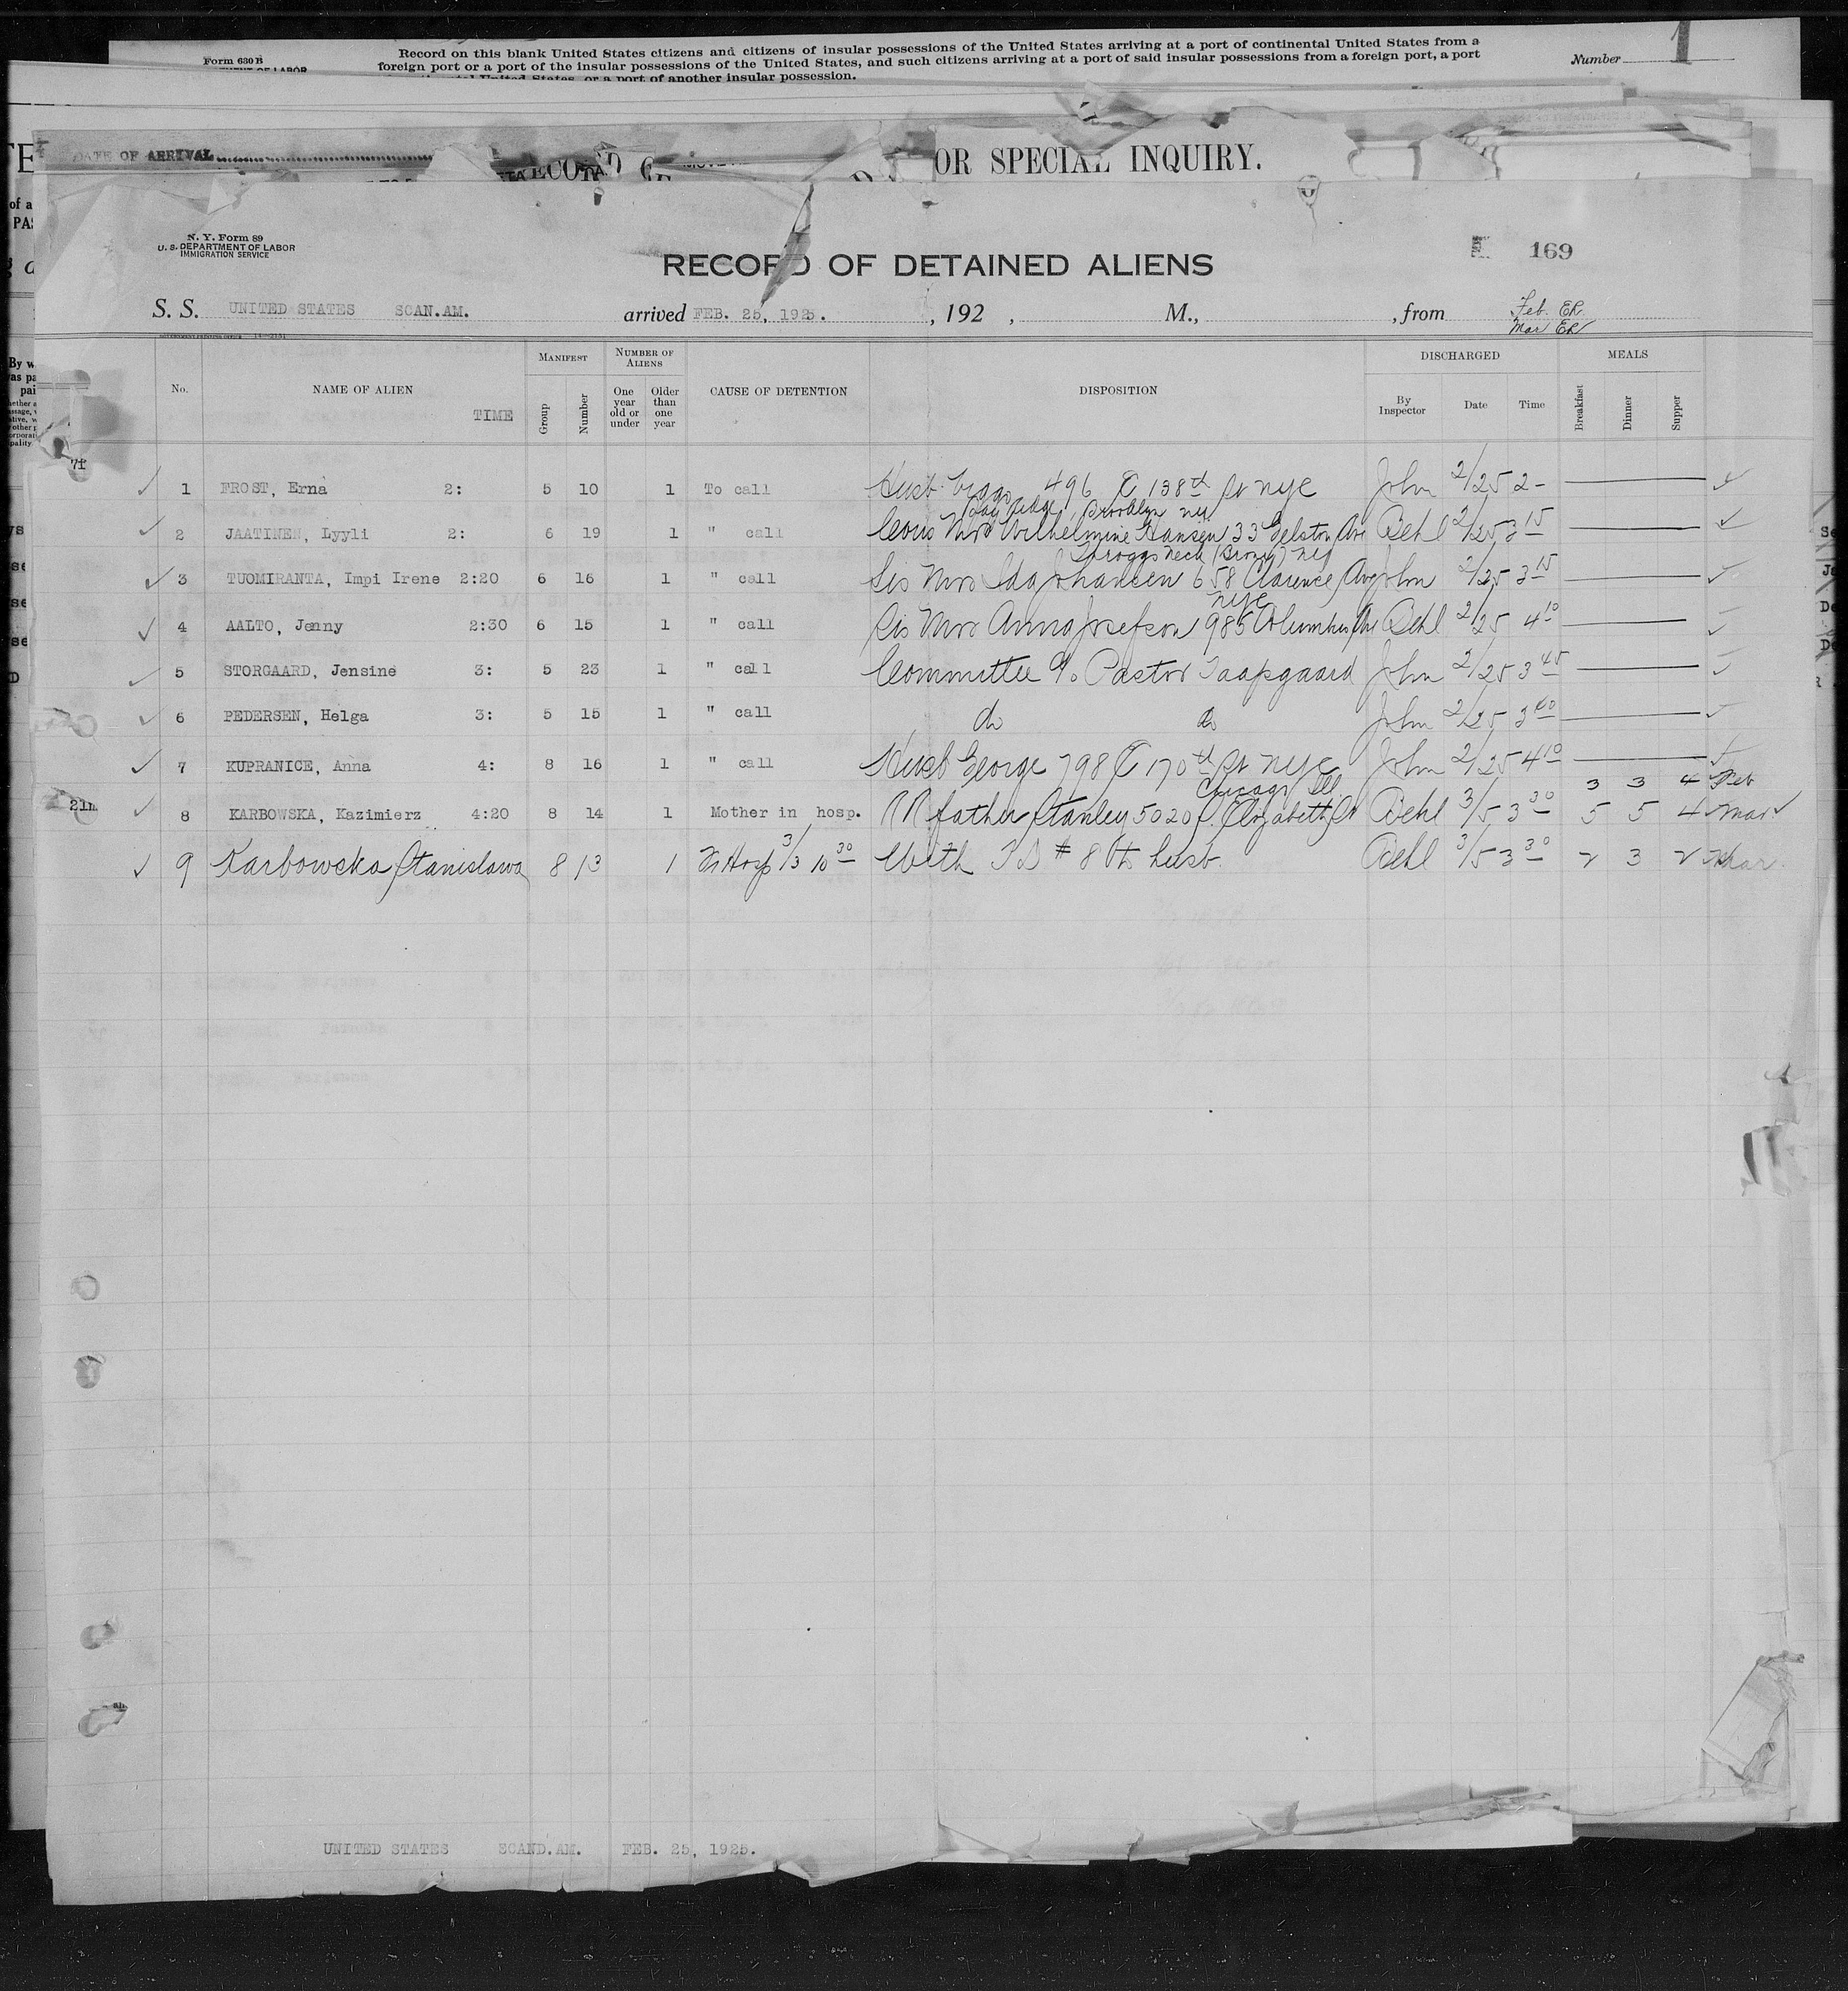 Form 630 B
Record on this blank United States citizens and citizens of insular possessions of the United States arriving at a port of continental United States from a
foreign port or a port of the insular possessions of the United States, and such citizens arriving at a port of said insular possessions from a foreign port, a port
United States, or a port of another insular possession.
Number 1
DATE OF ARRIVAL
OR SPECIAL INQUIRY.
N. Y. Form 89
U. S. DEPARTMENT OF LABOR
IMMIGRATION SERVICE
169
RECORD OF DETAINED ALIENS
S. S. UNITED STATES SCAN.AM. arrived FEB. 25, 1925. , 192 , M., , from Feb. ER
Mar ER
No. NAME OF ALIEN TIME MANIFEST Group Number NUMBER OF ALIENS One year old or under Older than one year CAUSE OF DETENTION DISPOSITION DISCHARGED By Inspector Date Time MEALS Breakfast Dinner Supper
7f
1 FROST, Erna 2: 5 10 1 To call Husb 496 E 138th St NYC John 2/25 2-
Bay Ridge, Brooklyn NY
2 JAATINEN, Lyyli 2: 6 19 1 " call Cous Mrs Wilhelmine Hansen 33 Gelston Ave Behl 2/25 3 15
Throggs Neck (Bronx) NY
3 TUOMIRANTA, Impi Irene 2:20 6 16 1 " call Sis Mrs Ida Johansen 658 Clarence Ave John 2/25 3 15
NYC
4 AALTO, Jenny 2:30 6 15 1 " call Sis Mrs Anna Josefson 985 Columbus Ave Behl 2/25 4 10
5 STORGAARD, Jensine 3: 5 23 1 " call Committee % Pastor John 2/25 3 45
6 PEDERSEN, Helga 3: 5 15 1 " call do do John 2/25 3
7 KUPRANICE, Anna 4: 8 16 1 " call Husb George 798 E 170th St NYC John 2/25 4 10
Chicago Ill 3 3 4 Feb
21m
8 KARBOWSKA, Kazimierz 4:20 8 14 1 Mother in hosp. RR father Stanley 5020 S. Elizabeth St Behl 3/5 3 30 5 5 4 Mar
9 Karbowska Stanislawa 8 13 1 In Hosp 3/3 10 30 With TD # 8 to husb. Behl 3/5 3 30 2 3 2 Mar.
UNITED STATES SCAND.AM. FEB. 25, 1925.